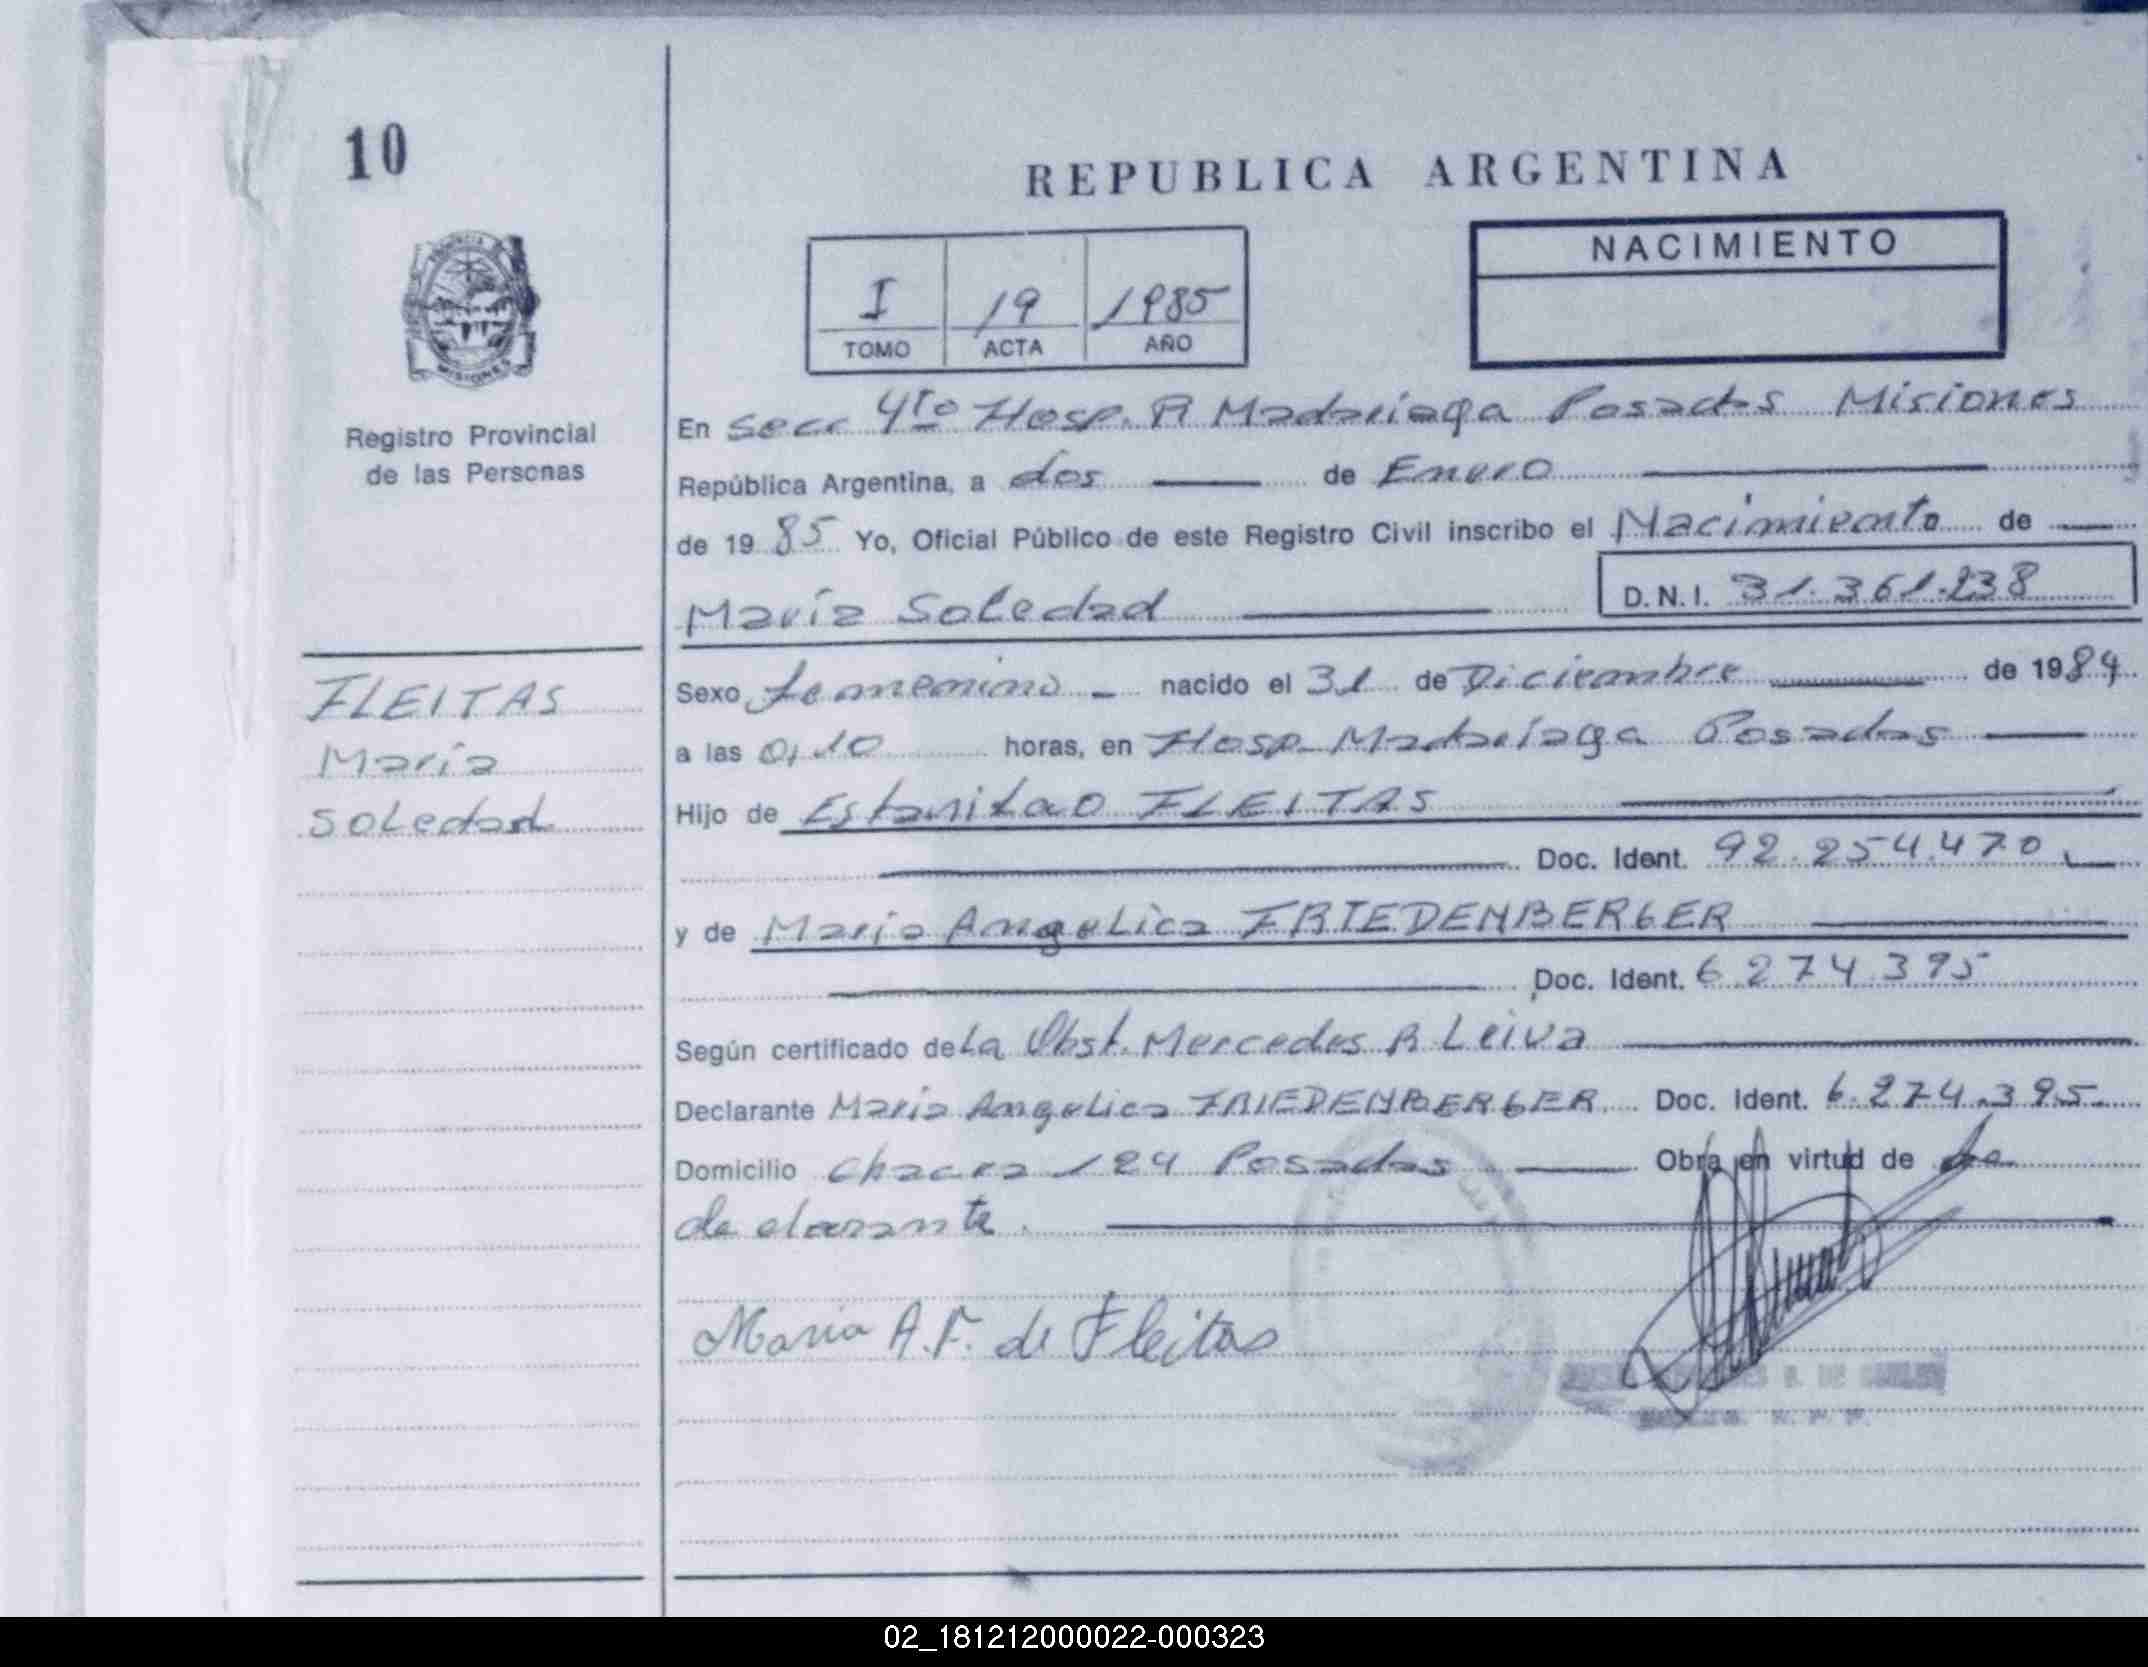 10
REPUBLICA ARGENTINA
NACIMIENTO
I 19 1985
TOMO ACTA AÑO
Registro Provincial
de las Personas
MISIONES
En Secc 4to Hosp. R Madariaga Posadas Misiones
República Argentina, a dos de Enero
de 1985 Yo, Oficial Público de este Registro Civil inscribo el Nacimiento de
María Soledad D.N.I. 31.361.238
FLEITAS
María
Soledad
Sexo femenino nacido el 31 de Diciembre de 1984
a las 0,10 horas, en Hosp. Madariaga Posadas
Hijo de Estanilao FLEITAS
Doc. Ident. 92.254.470
y de María Angelica FRIEDENBERGER
Doc. Ident. 6.274.395
Según certificado de La Obst. Mercedes R Leiva
Declarante María Angelica FRIEDENBERGER Doc. Ident. 6.274.395
Domicilio Chacra 124 Posadas Obra en virtud de
declarante.
María A.F. de Fleitas
02_181212000022-000323